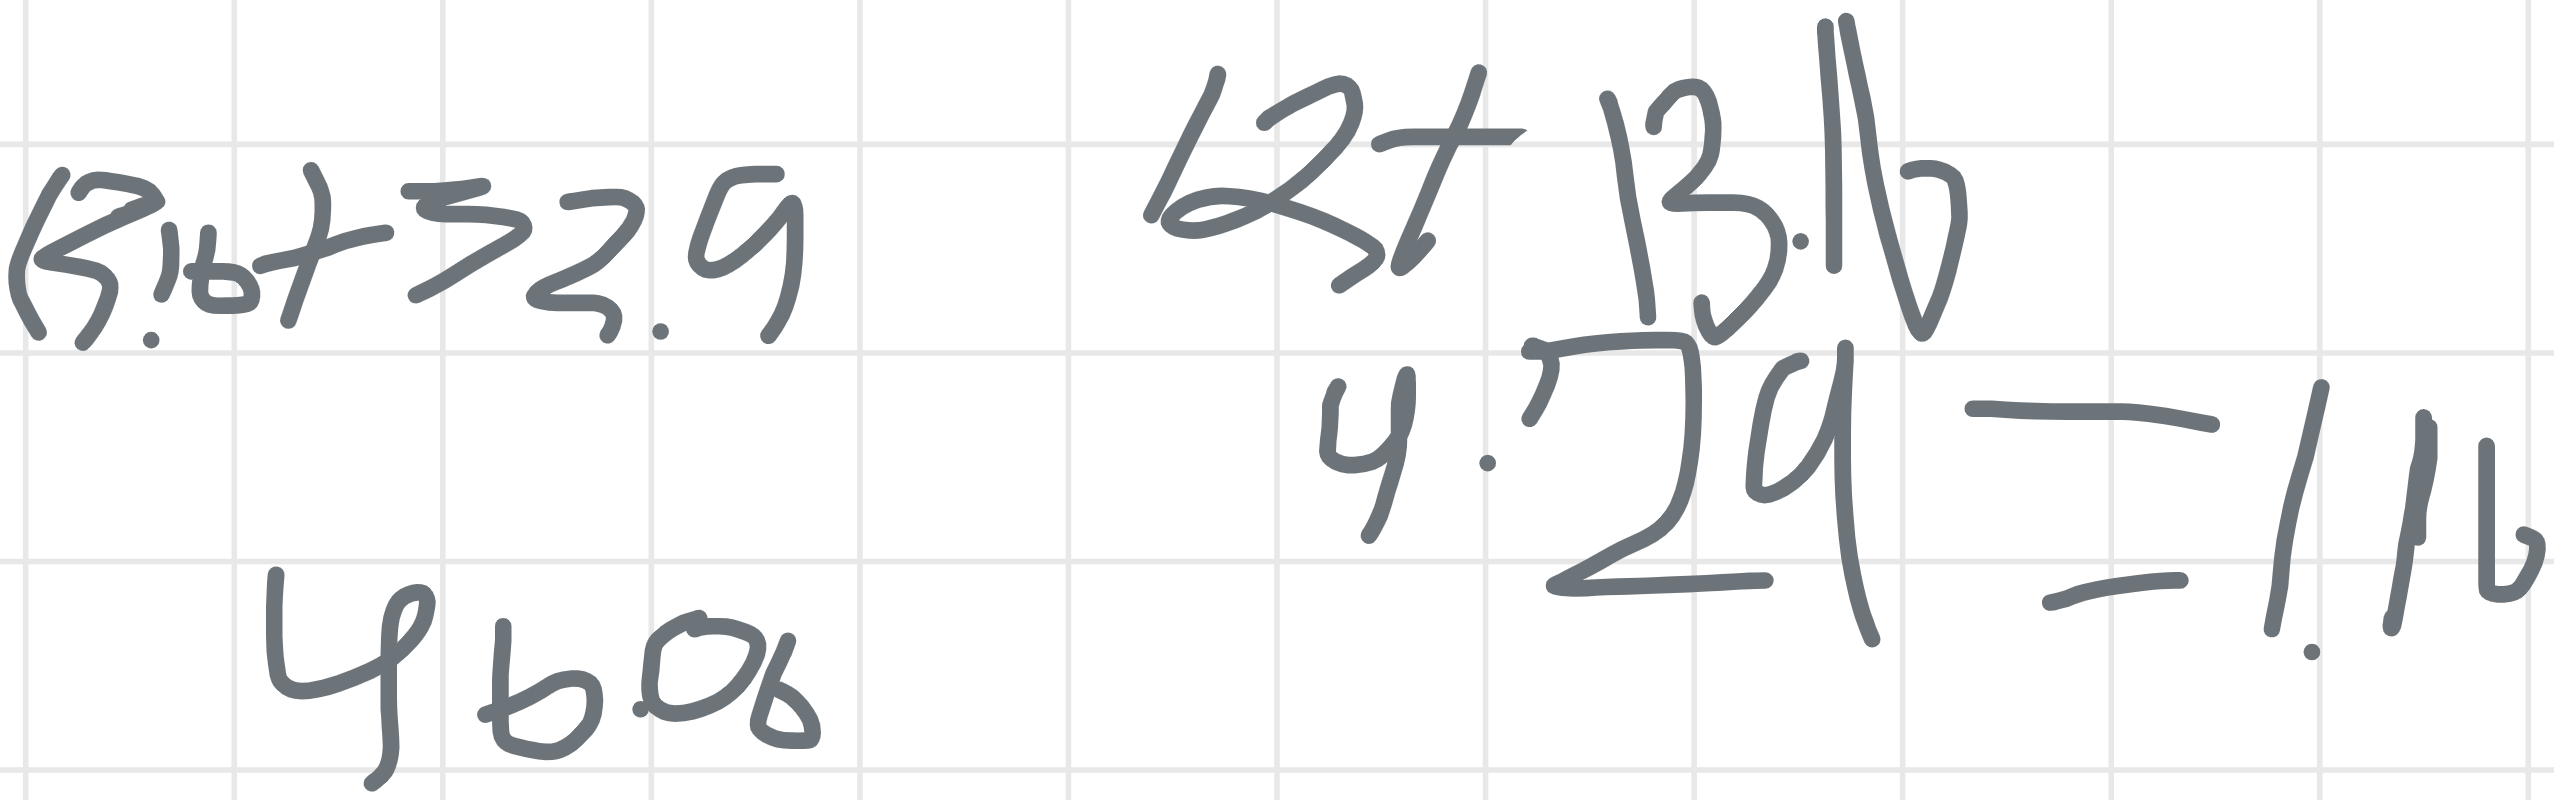 13.16+32.9
46.06
12+ 13.16
4.29 = 1.16